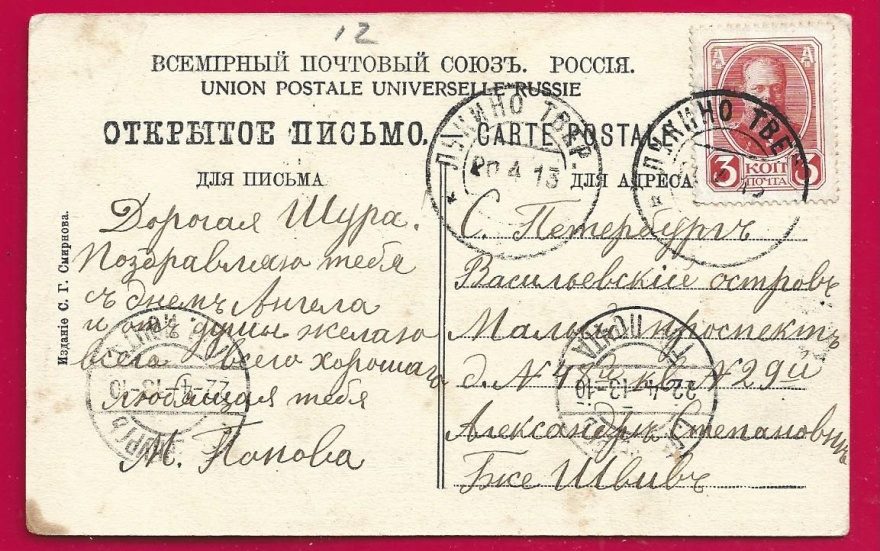 12
ВСЕМІРНЫЙ ПОЧТОВЫЙ СОЮЗЪ. РОССІЯ.
UNION POSTALE UNIVERSELLE RUSSIE
ОТКРЫТОЕ ПИСЬМО. CARTE POSTALE
ДЛЯ ПИСЬМА ДЛЯ АДРЕСА
Дорогая Шура.
Поздравляю тебя
съ днемъ Ангела
и отъ души желаю
всего всего хорошаго
любящая тебя
М. Попова
С. Петербургъ
Васильевскій островъ
Малый проспектъ
д. N 48 кв N 29й
Александръ Степановнѣ
Изданіе С. Г. Смирнова.
ЛУКИНО ТВЕР.
20 4 13
ЛУКИНО ТВЕ
3 КОП 3
ПОЧТА
22-4-13-10
22-4-13-10